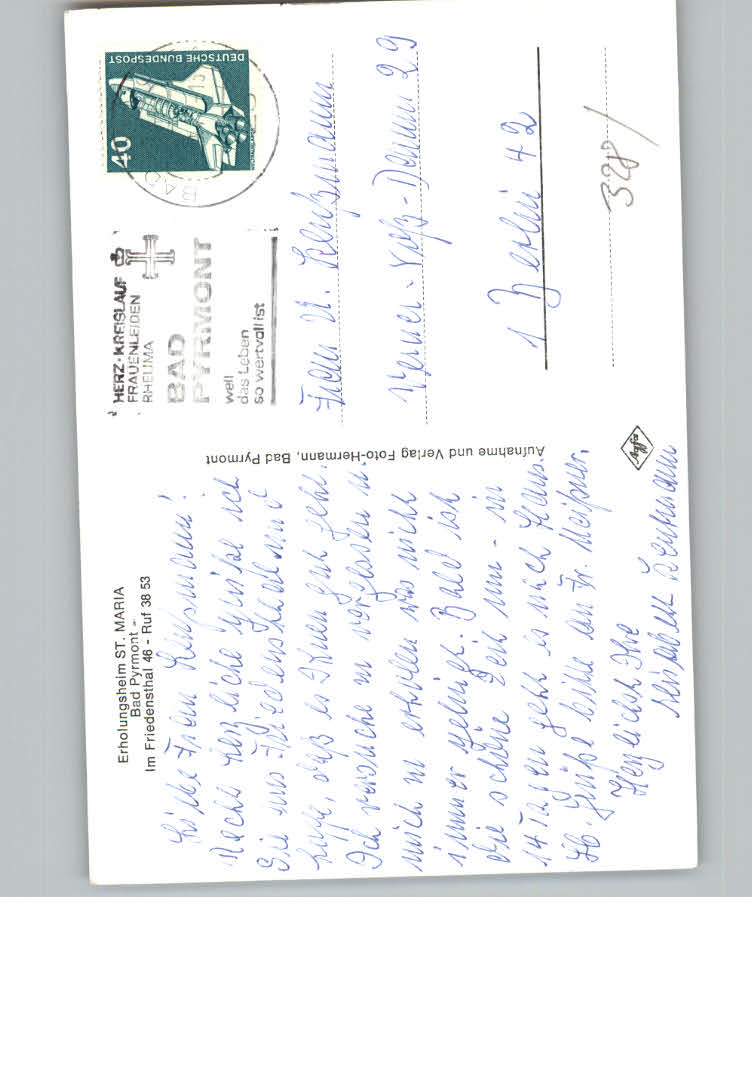 Erholungsheim ST. MARIA
Bad Pyrmont -
Im Friedensthal 46 - Ruf 38 53
Liebe Frau
Recht herzliche Grüße ich
Sie aus Friedensthal und
hoffe, daß es Ihnen gut geht.
Ich versuche zu vergessen u.
mich zu erholen was nicht
immer gelingt. Bald ist
die schöne Zeit um - in
14 Tagen geht es nach Haus.
Hb. Grüße bitte an Fr. Meißner.
Herzlichst Ihre
Aufnahme und Verlag Foto-Hermann, Bad Pyrmont
HERZ·KREISLAUF
FRAUENLEIDEN
RHEUMA
BAD
PYRMONT
weil
das Leben
so wertvoll ist
40
DEUTSCHE BUNDESPOST
BAD
Frau U.
Werner-Voß-Damm 29
1 Berlin 42
328/